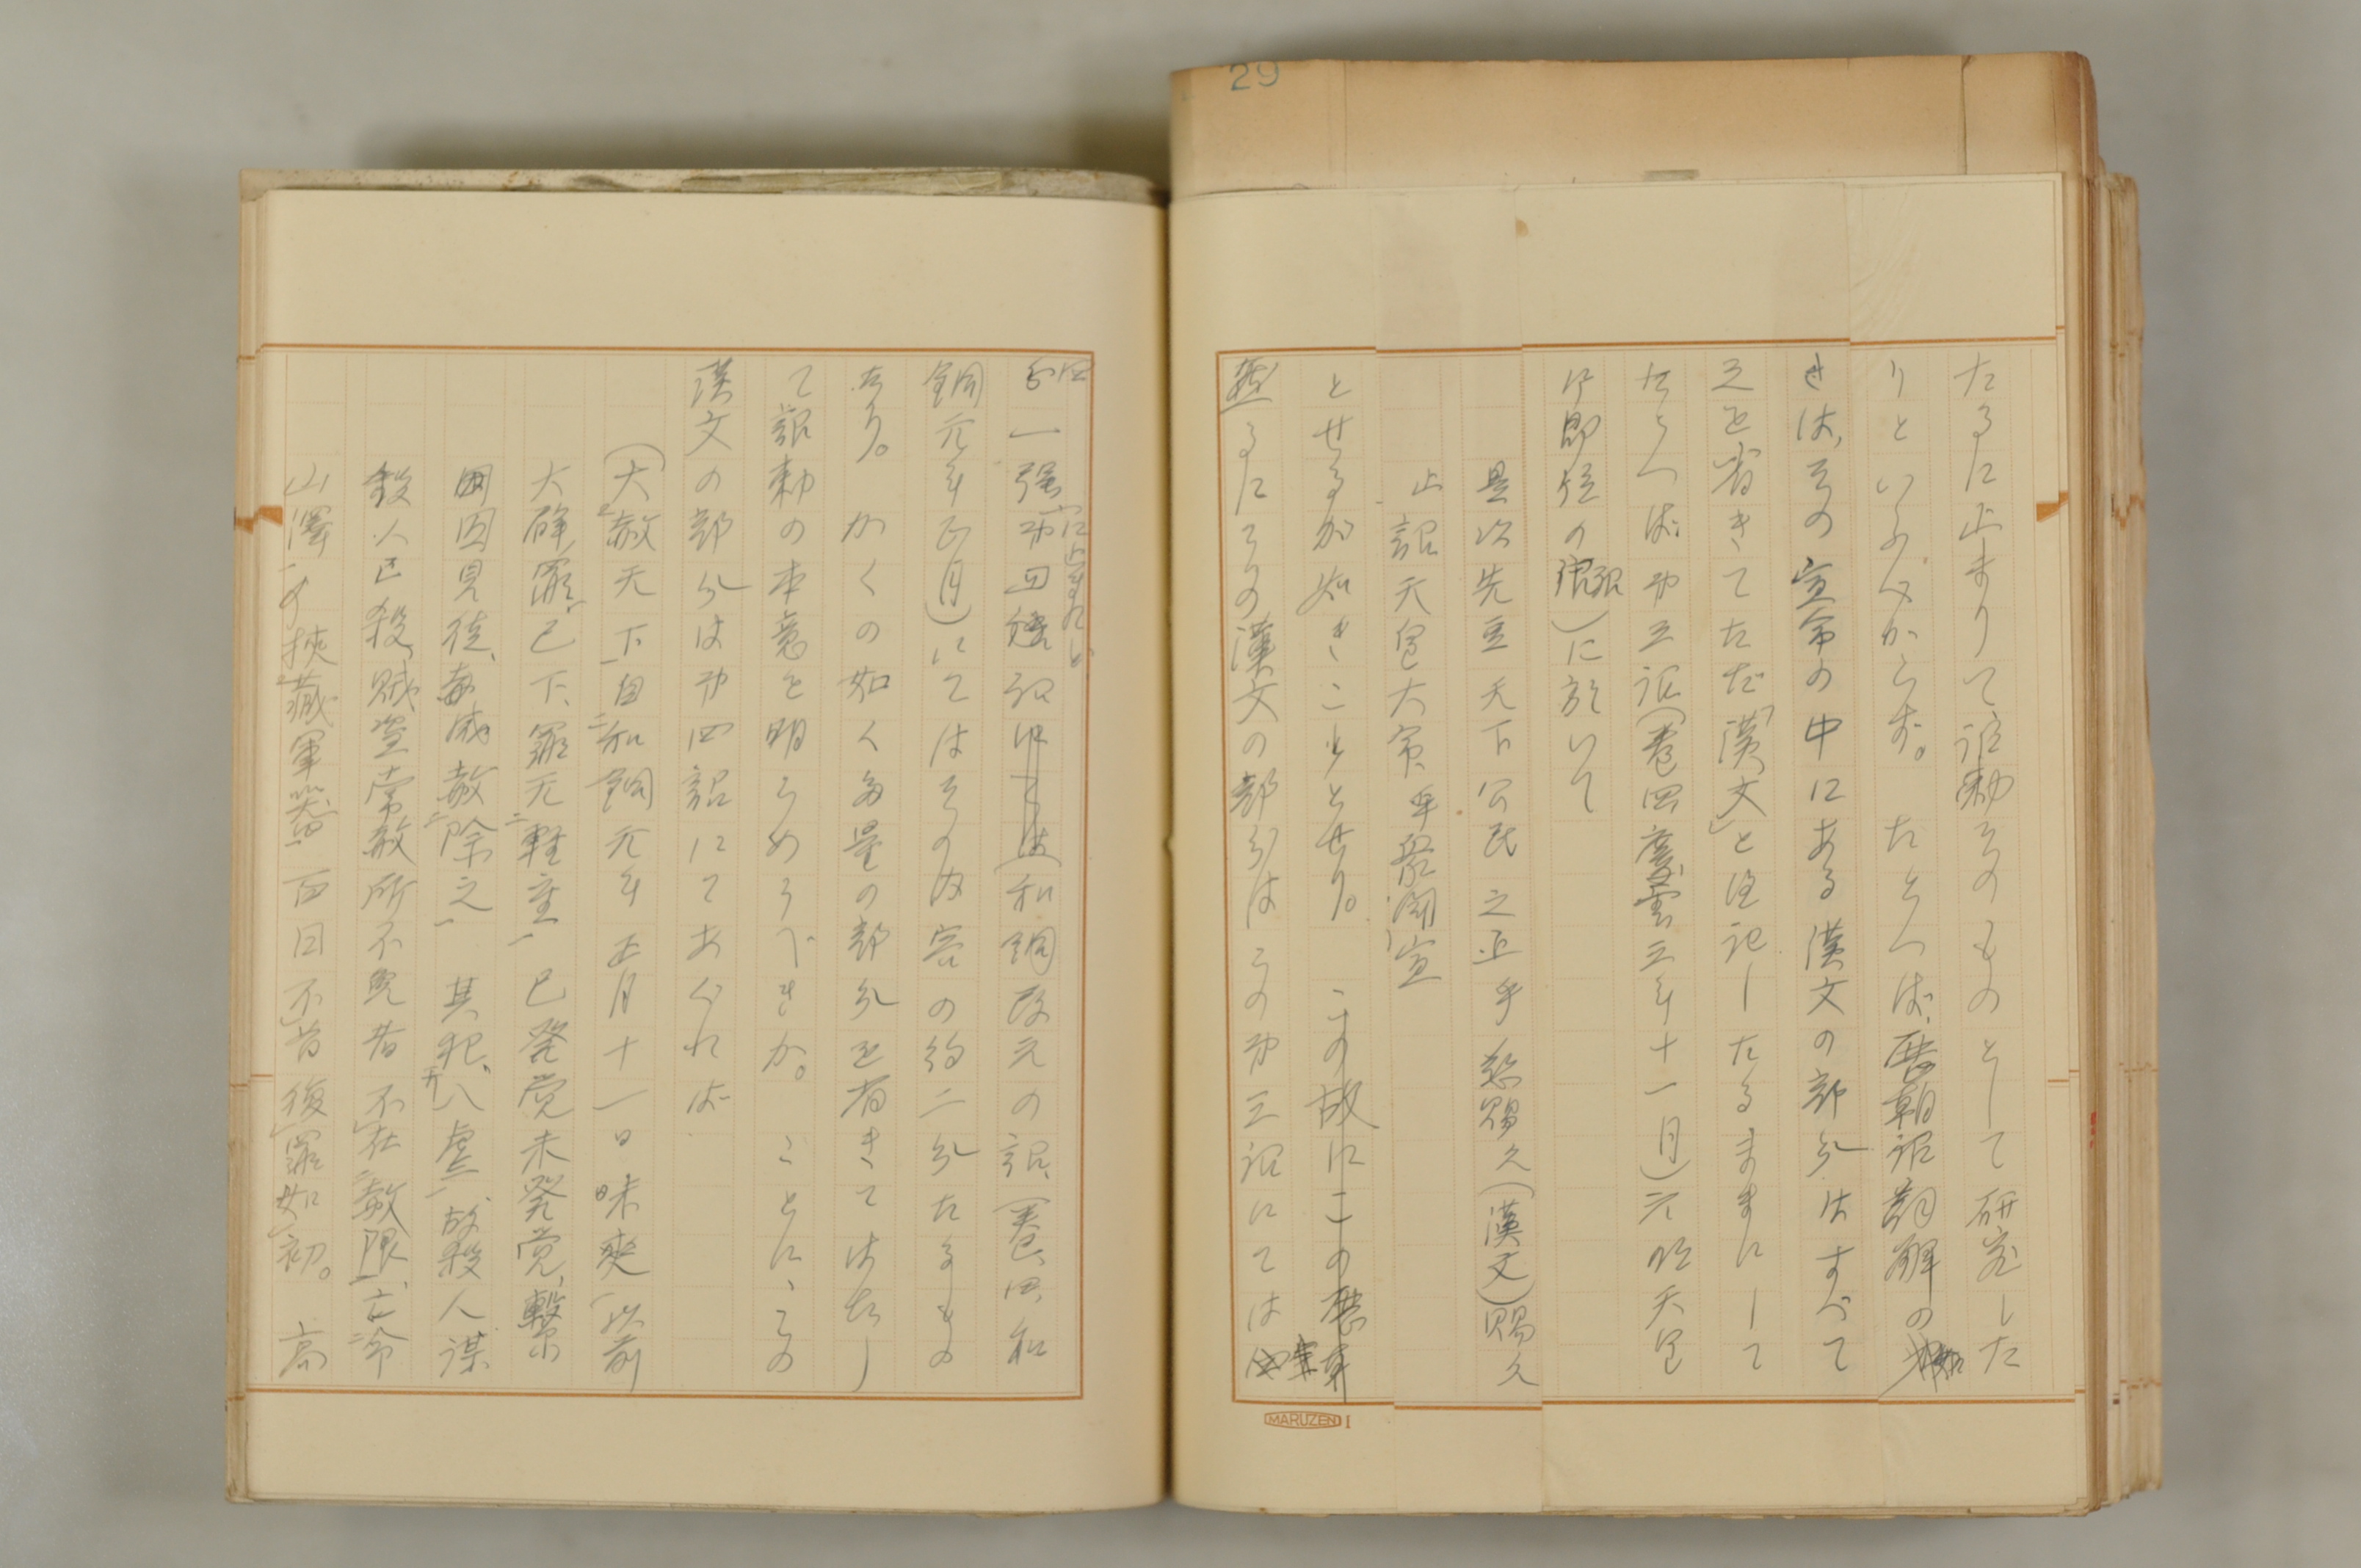 29
たるに止まりて詔勅そのものとして研究した
りといふべからず。たとへば、歴朝詔詞解の如
きは、その宣命の中にある漢文の部分はすべて
之を省きてただ「漢文」と注記したるままにして
たとへば第三詔(巻四慶雲三年十一月)元明天皇
御即位の詔)に於いて
是以先豆天下公民之上乎慈賜久(漢文)賜久
止詔天皇大命乎衆聞宣
とせるが如きことせり。この故にこの
るにその漢文の部分はこの第三詔にては
分一強に止まれど第四詔(和銅改元の詔、(巻、四、和
銅元年正月)にてはその内容の約二分たるもの
なり。かくの如く多量の部分を省きてはたし
て詔勅の本意を明らめうべきか。ことに、この
漢文の部分は第四詔にてあぐれば
(大赦天下自和銅元年正月十一日昧爽以前
大辟罪已下、罪无軽重已発覚未発覚、繋
囚見徒、咸赦除之其犯八虐故殺人謀
殺人已殺、賊盗常赦所不免者不在赦限、亡命
山澤挟蔵軍器百日不首復罪如初。高
MARUZEN I